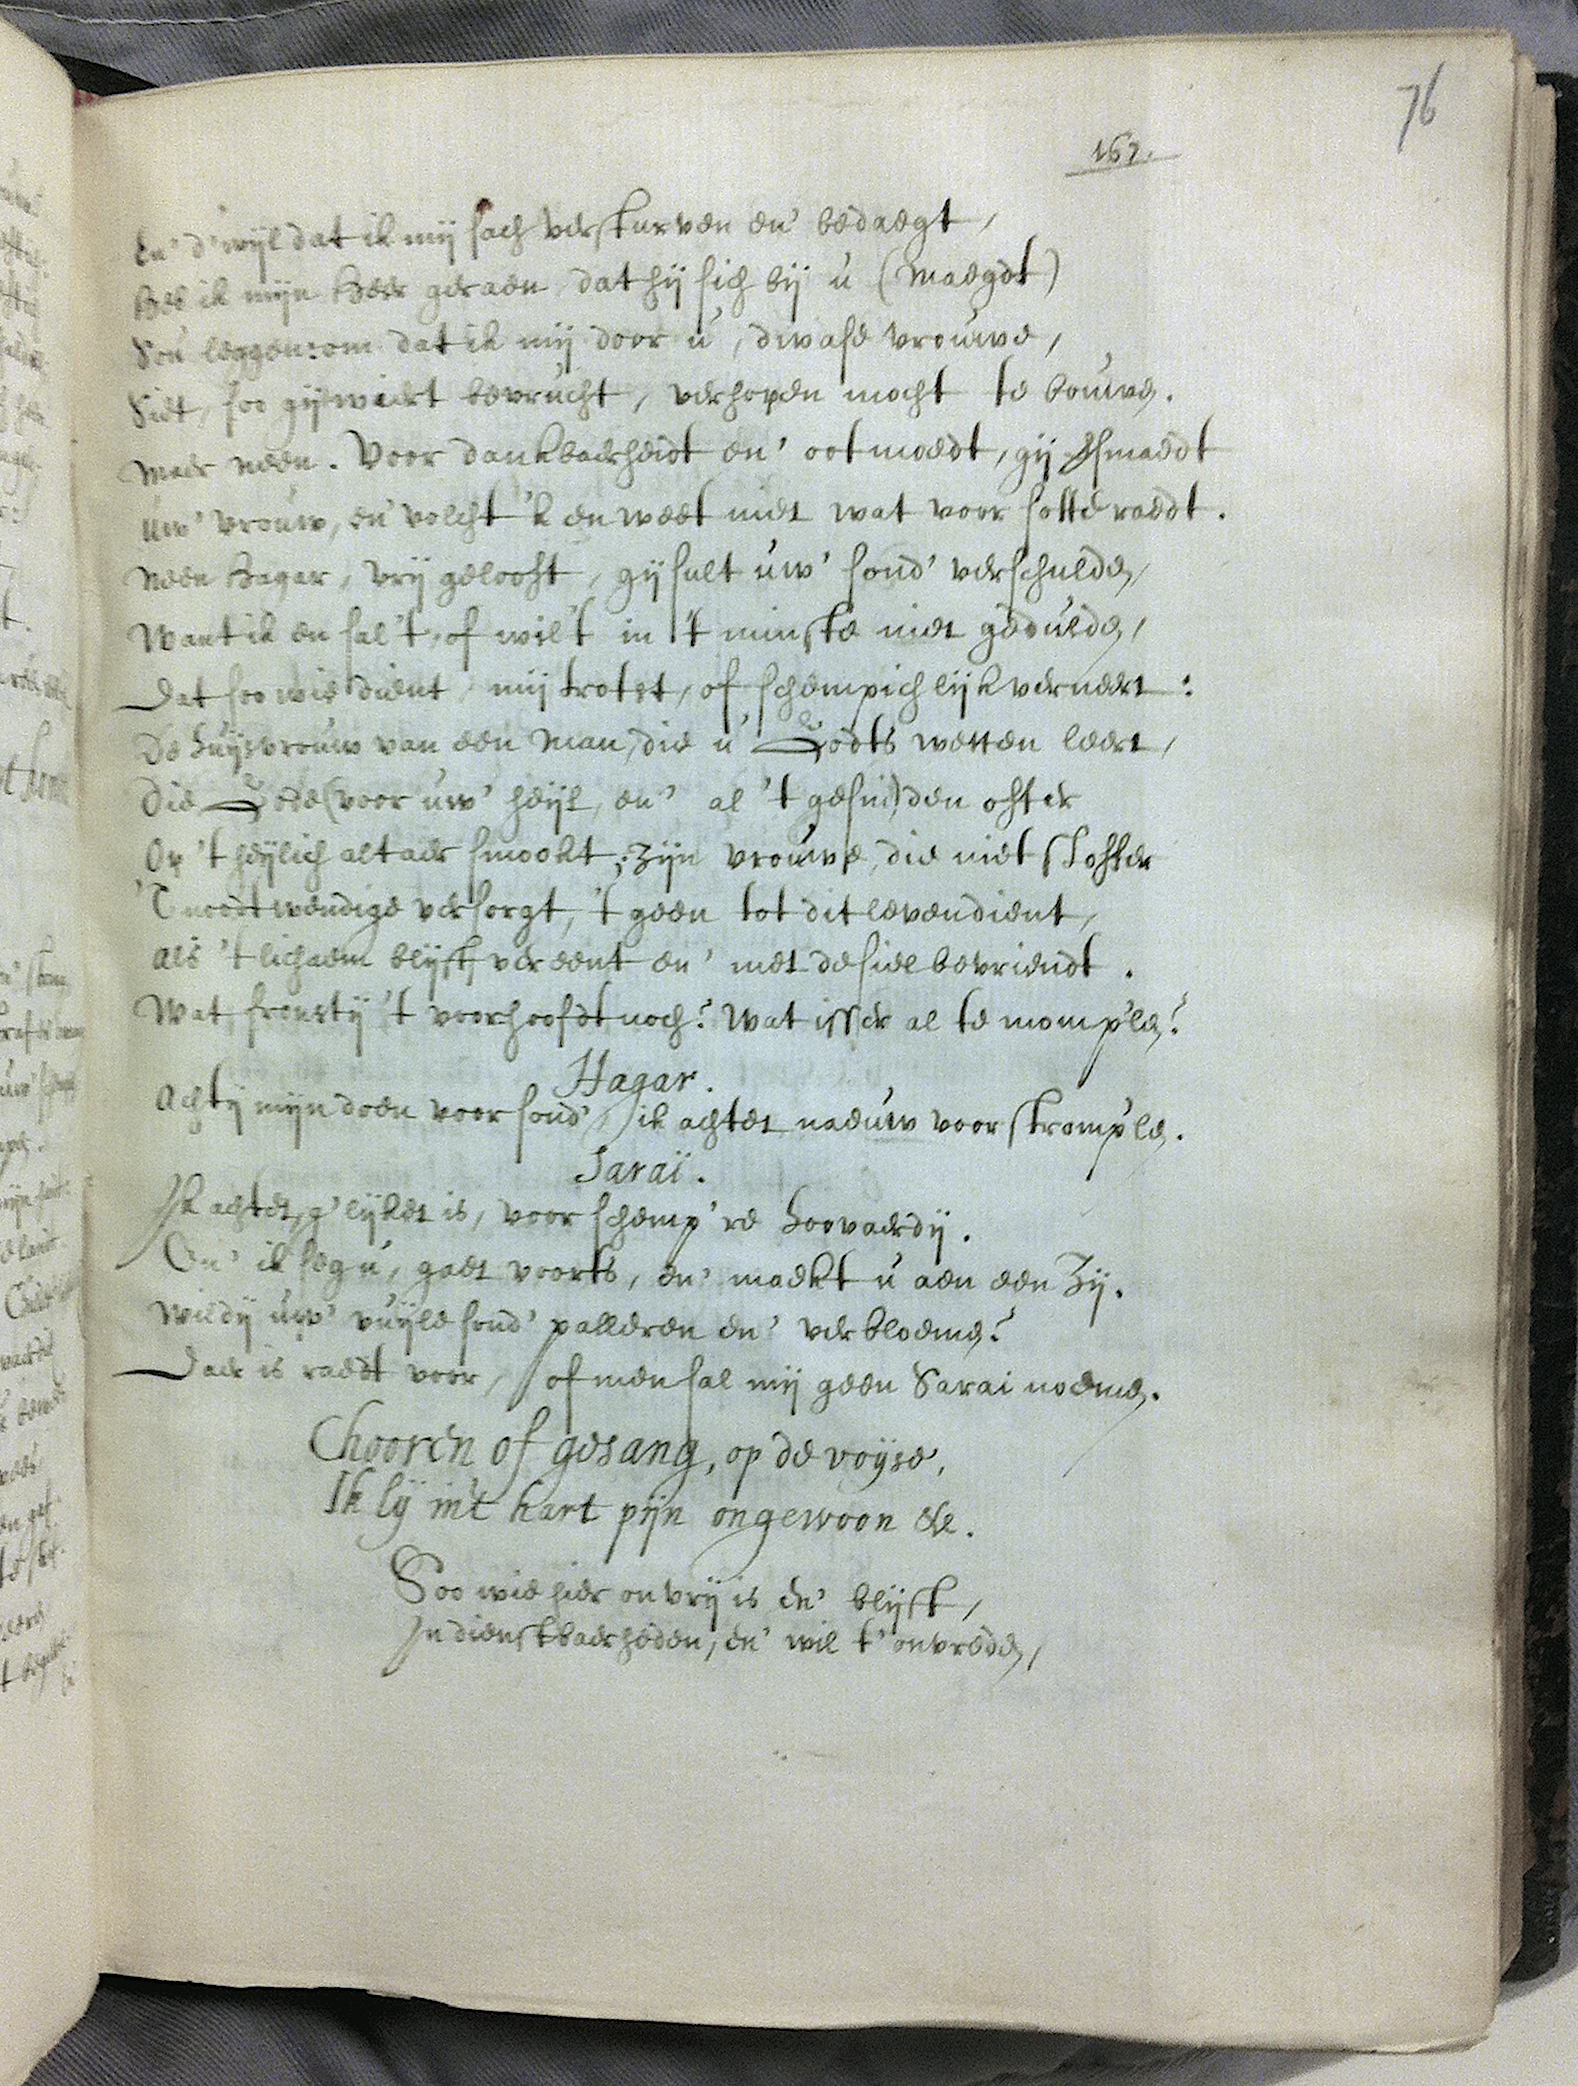 76
167.
En' d'wyl dat ik mij sach versturven en' bedaegt,
Heb ik mijn Heer geraen, dat hij sich bij u (Maegdt)
Sou leggen: om dat ik mij door u, dwase vrouwe,
Siet, soo gij wiert bevrucht, verhopen mocht te bouwen.
Maer neen. Voor dankbaerheidt en' ootmoedt, gij smaedt
Uw' vrouw, en' volcht 'k en weet niet wat voor sotte raedt.
Neen Hagar, vrij gelooft, gij sult uw' sond' verschulden,
Want ik en sal 't, of wil 't in 't minste niet gedulden,
Dat soo wie dient, mij trotst, of schempichlijk verneert:
De huijsvrouw van een Man, die u Godts wetten leert,
Die Gode (voor uw' heijl, en' al 't gesin) den offer
Op 't heijlich altaer smookt; zijn vrouwe, die niet stoffer
'T nootwendige versorgt, 't geen tot dit leven dient,
Als 't lichaem blijft vereent en' met de siel bevriendt.
Wat fronsty 't voorhoofdt noch? Wat isser al te momp'len?
Hagar.
Achty mijn doen voor sond', ik achtet naeuw voor stromp'len.
Saraï.
Ik achtet, g'lijket is, voor schemp're hoovaerdij.
En' ik seg u, gaet voorts, en' maekt u aen een Zij.
Wildij uw' vuijle sond' palleren en' verbloemen?
Daer is raedt voor, of men sal mij geen Sarai noemen.
Chooren of gesang, op de voijse,
Ik lij in't hart pijn ongewoon &c.
Soo wie hier onvrij is en' blijft,
In dienstbaerheden, en' wil t'onvreden,